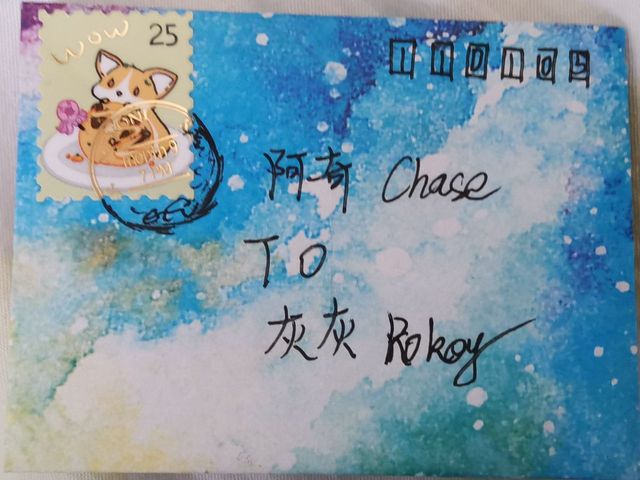 wow 25
110105
阿奇 Chase
TO
灰灰 Rokoy